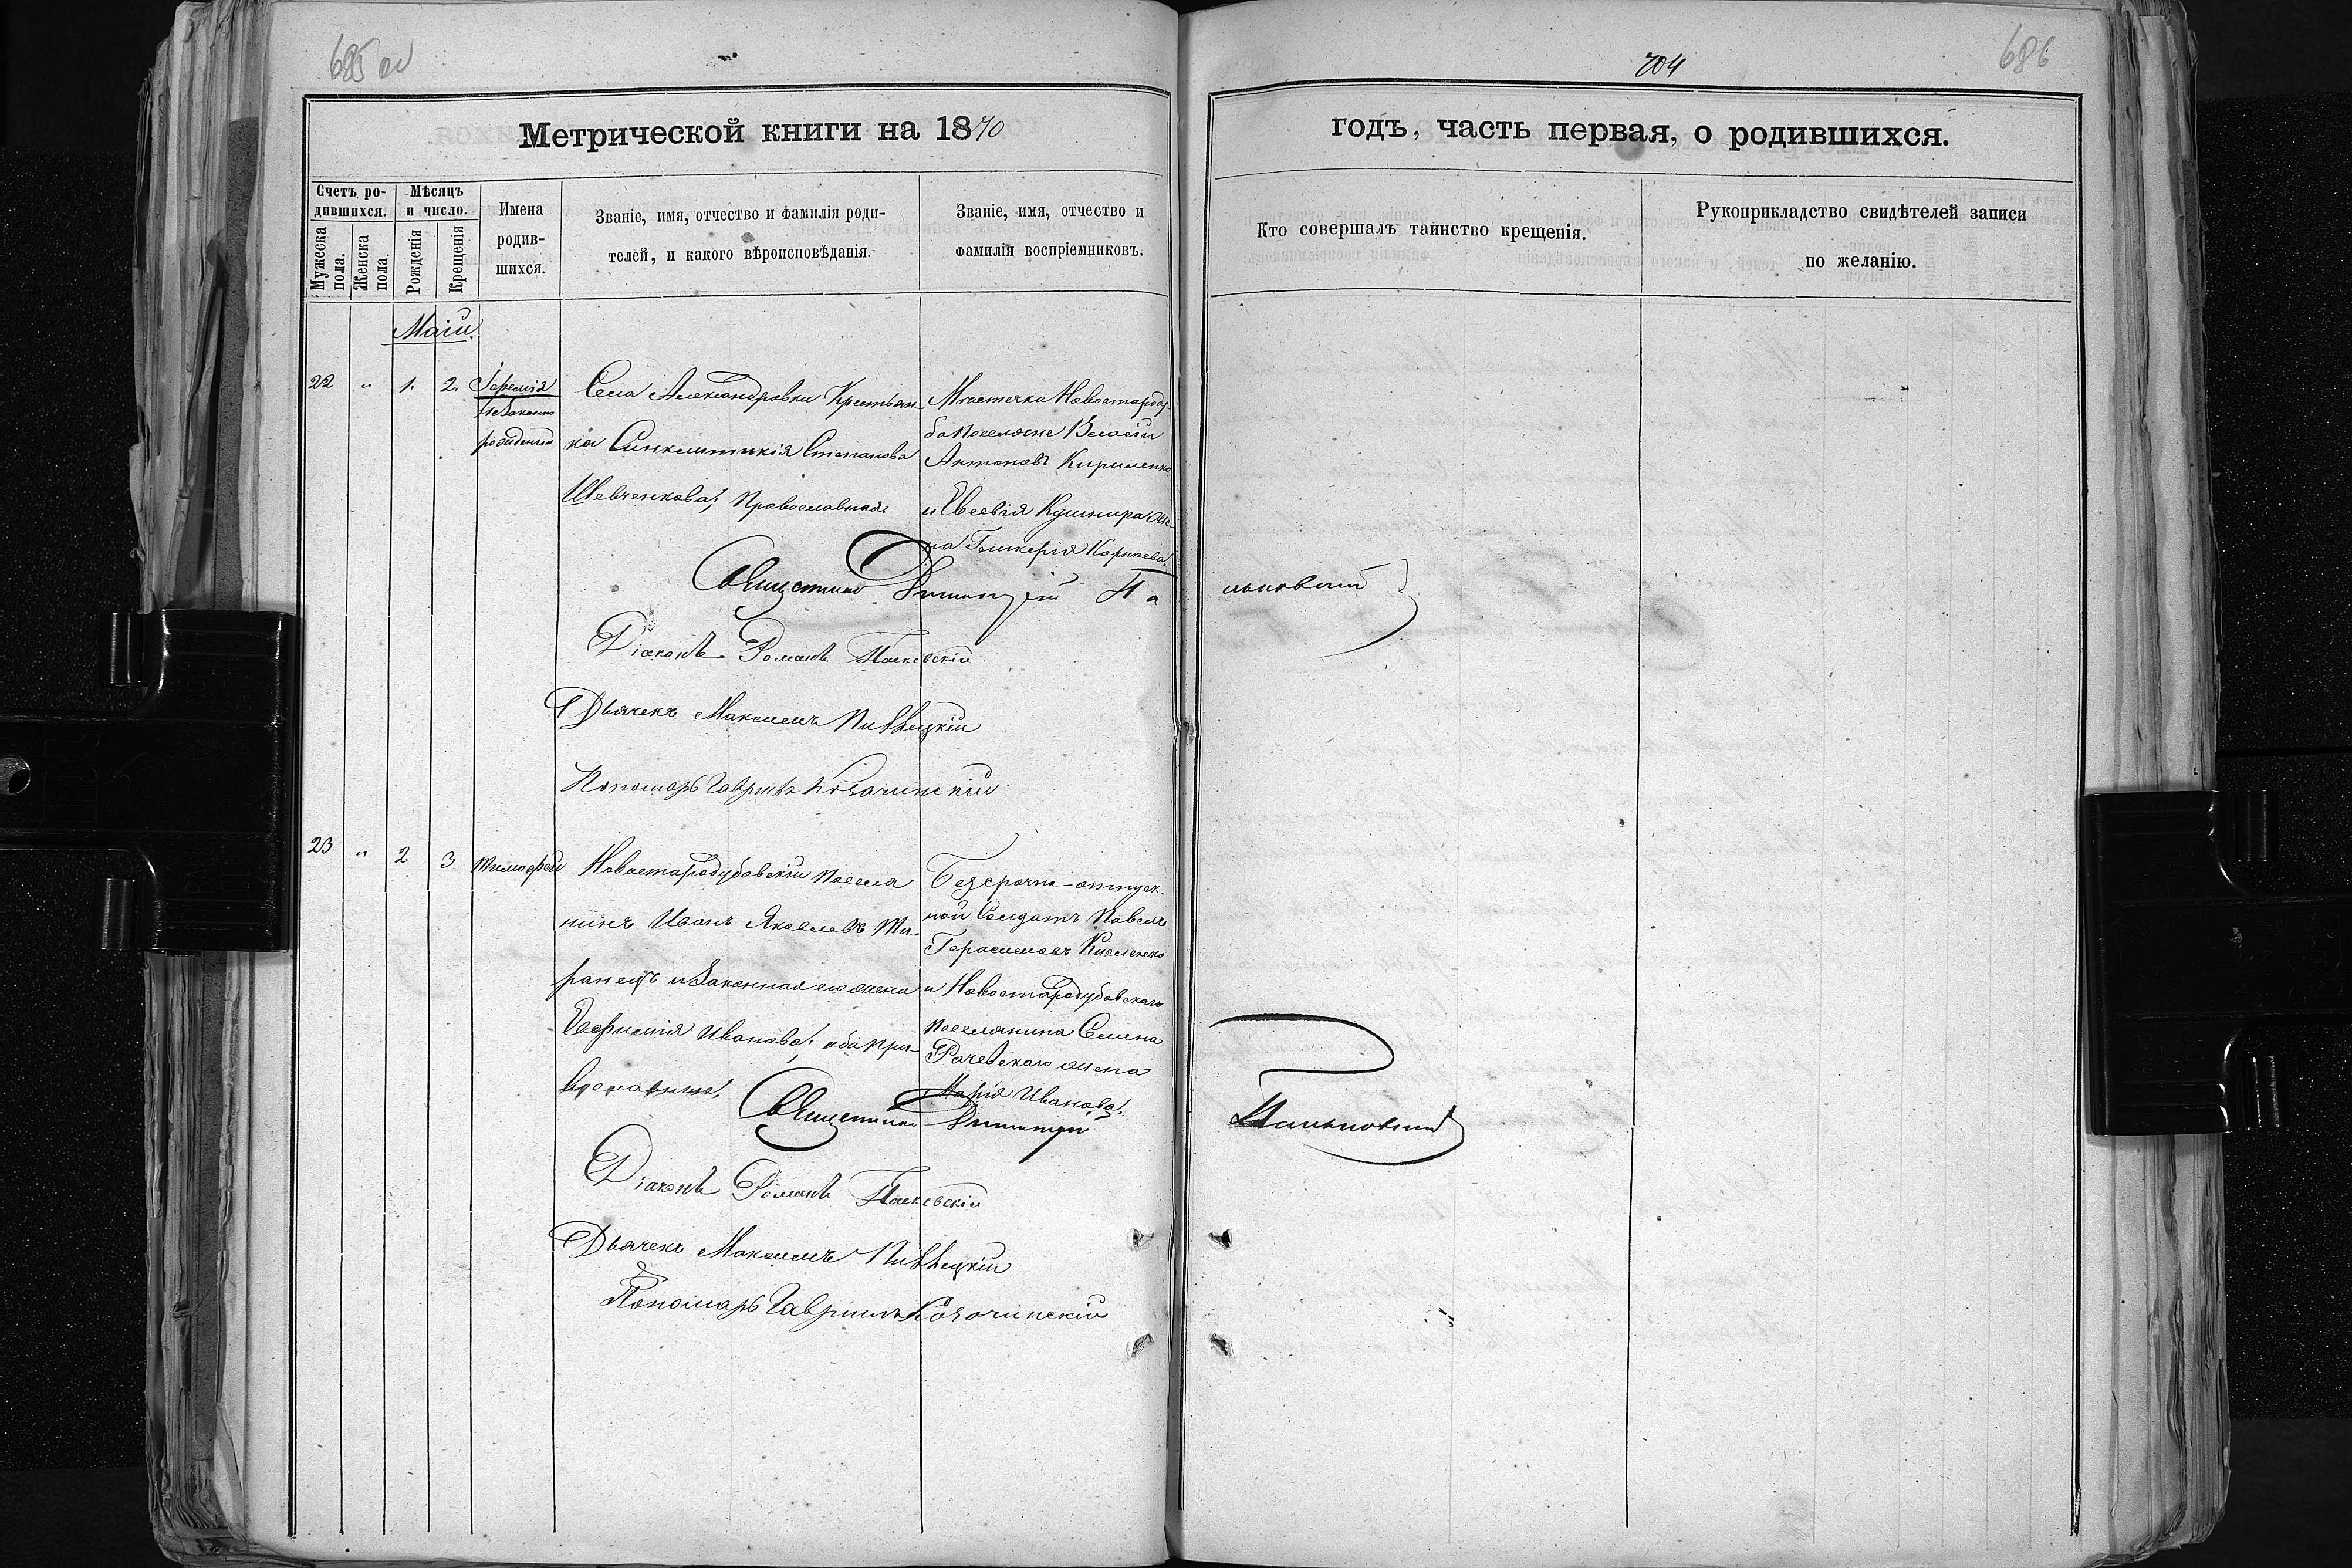 685 об
704
686
Метрической книги на 1870
годъ, часть первая, о родившихся.
Счетъ родившихся.
Мѣсяцъ и число.
Имена родившихся.
Званіе, имя, отчество и фамилія родителей, и какого вѣроисповѣданія.
Званіе, имя, отчество и фамилія воспріемниковъ.
Кто совершалъ таинство крещенія.
Рукоприкладство свидѣтелей записи по желанію.
Мужеска пола.
Женска пола.
Рожденія
Крещенія
Маій.
22 " 1. 2. Іеремія
незаконно
рожденный
Села Александровки Крестьян-
ка Синклитикія Степанова
Шевченкова; Православная.
Мѣстечка Новостароду-
ба поселяне Власій
Антоновъ Кириленко
и Евсевія Кушнира же-
на Гликерія Карпова.
Священникъ Димитрій Па
льковскій
Діаконъ Романъ Паскевскій
Дьячекъ Максимъ Пивѣцкій
Пономарь Гавриилъ Козачинскій
23 " 2 3 Тимофей
Новостародубовскій поселя
нинъ Иванъ Яковлевъ Та-
ранецъ и законная его жена
Евфимія Иванова; оба пра-
вославные.
Безсрочно отпуск-
ной Солдатъ Павелъ
Герасимовъ Киселенко
и Новостародубовскаго
поселянина Семена
Рачевскаго жена
Марія Иванова.
Священникъ Димитрій
Пальковскій
Діаконъ Романъ Паскевскій
Дьячекъ Максимъ Пивѣцкій
Пономарь Гавриилъ Козачинскій